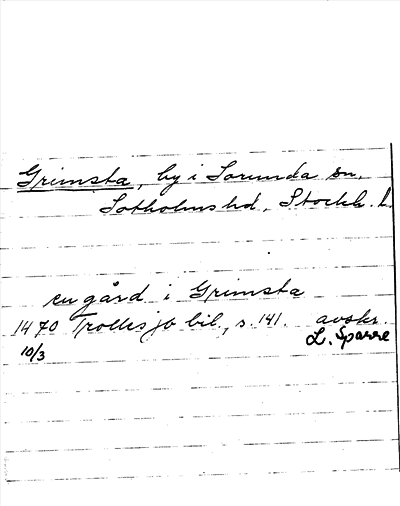 Grimsta, by i Sorunda sn,
Sotholms hd, Stockh. L.
en gård i Grimsta
1470 Trolles jb bil., s. 141. avskr.
10/3 L. Sparre